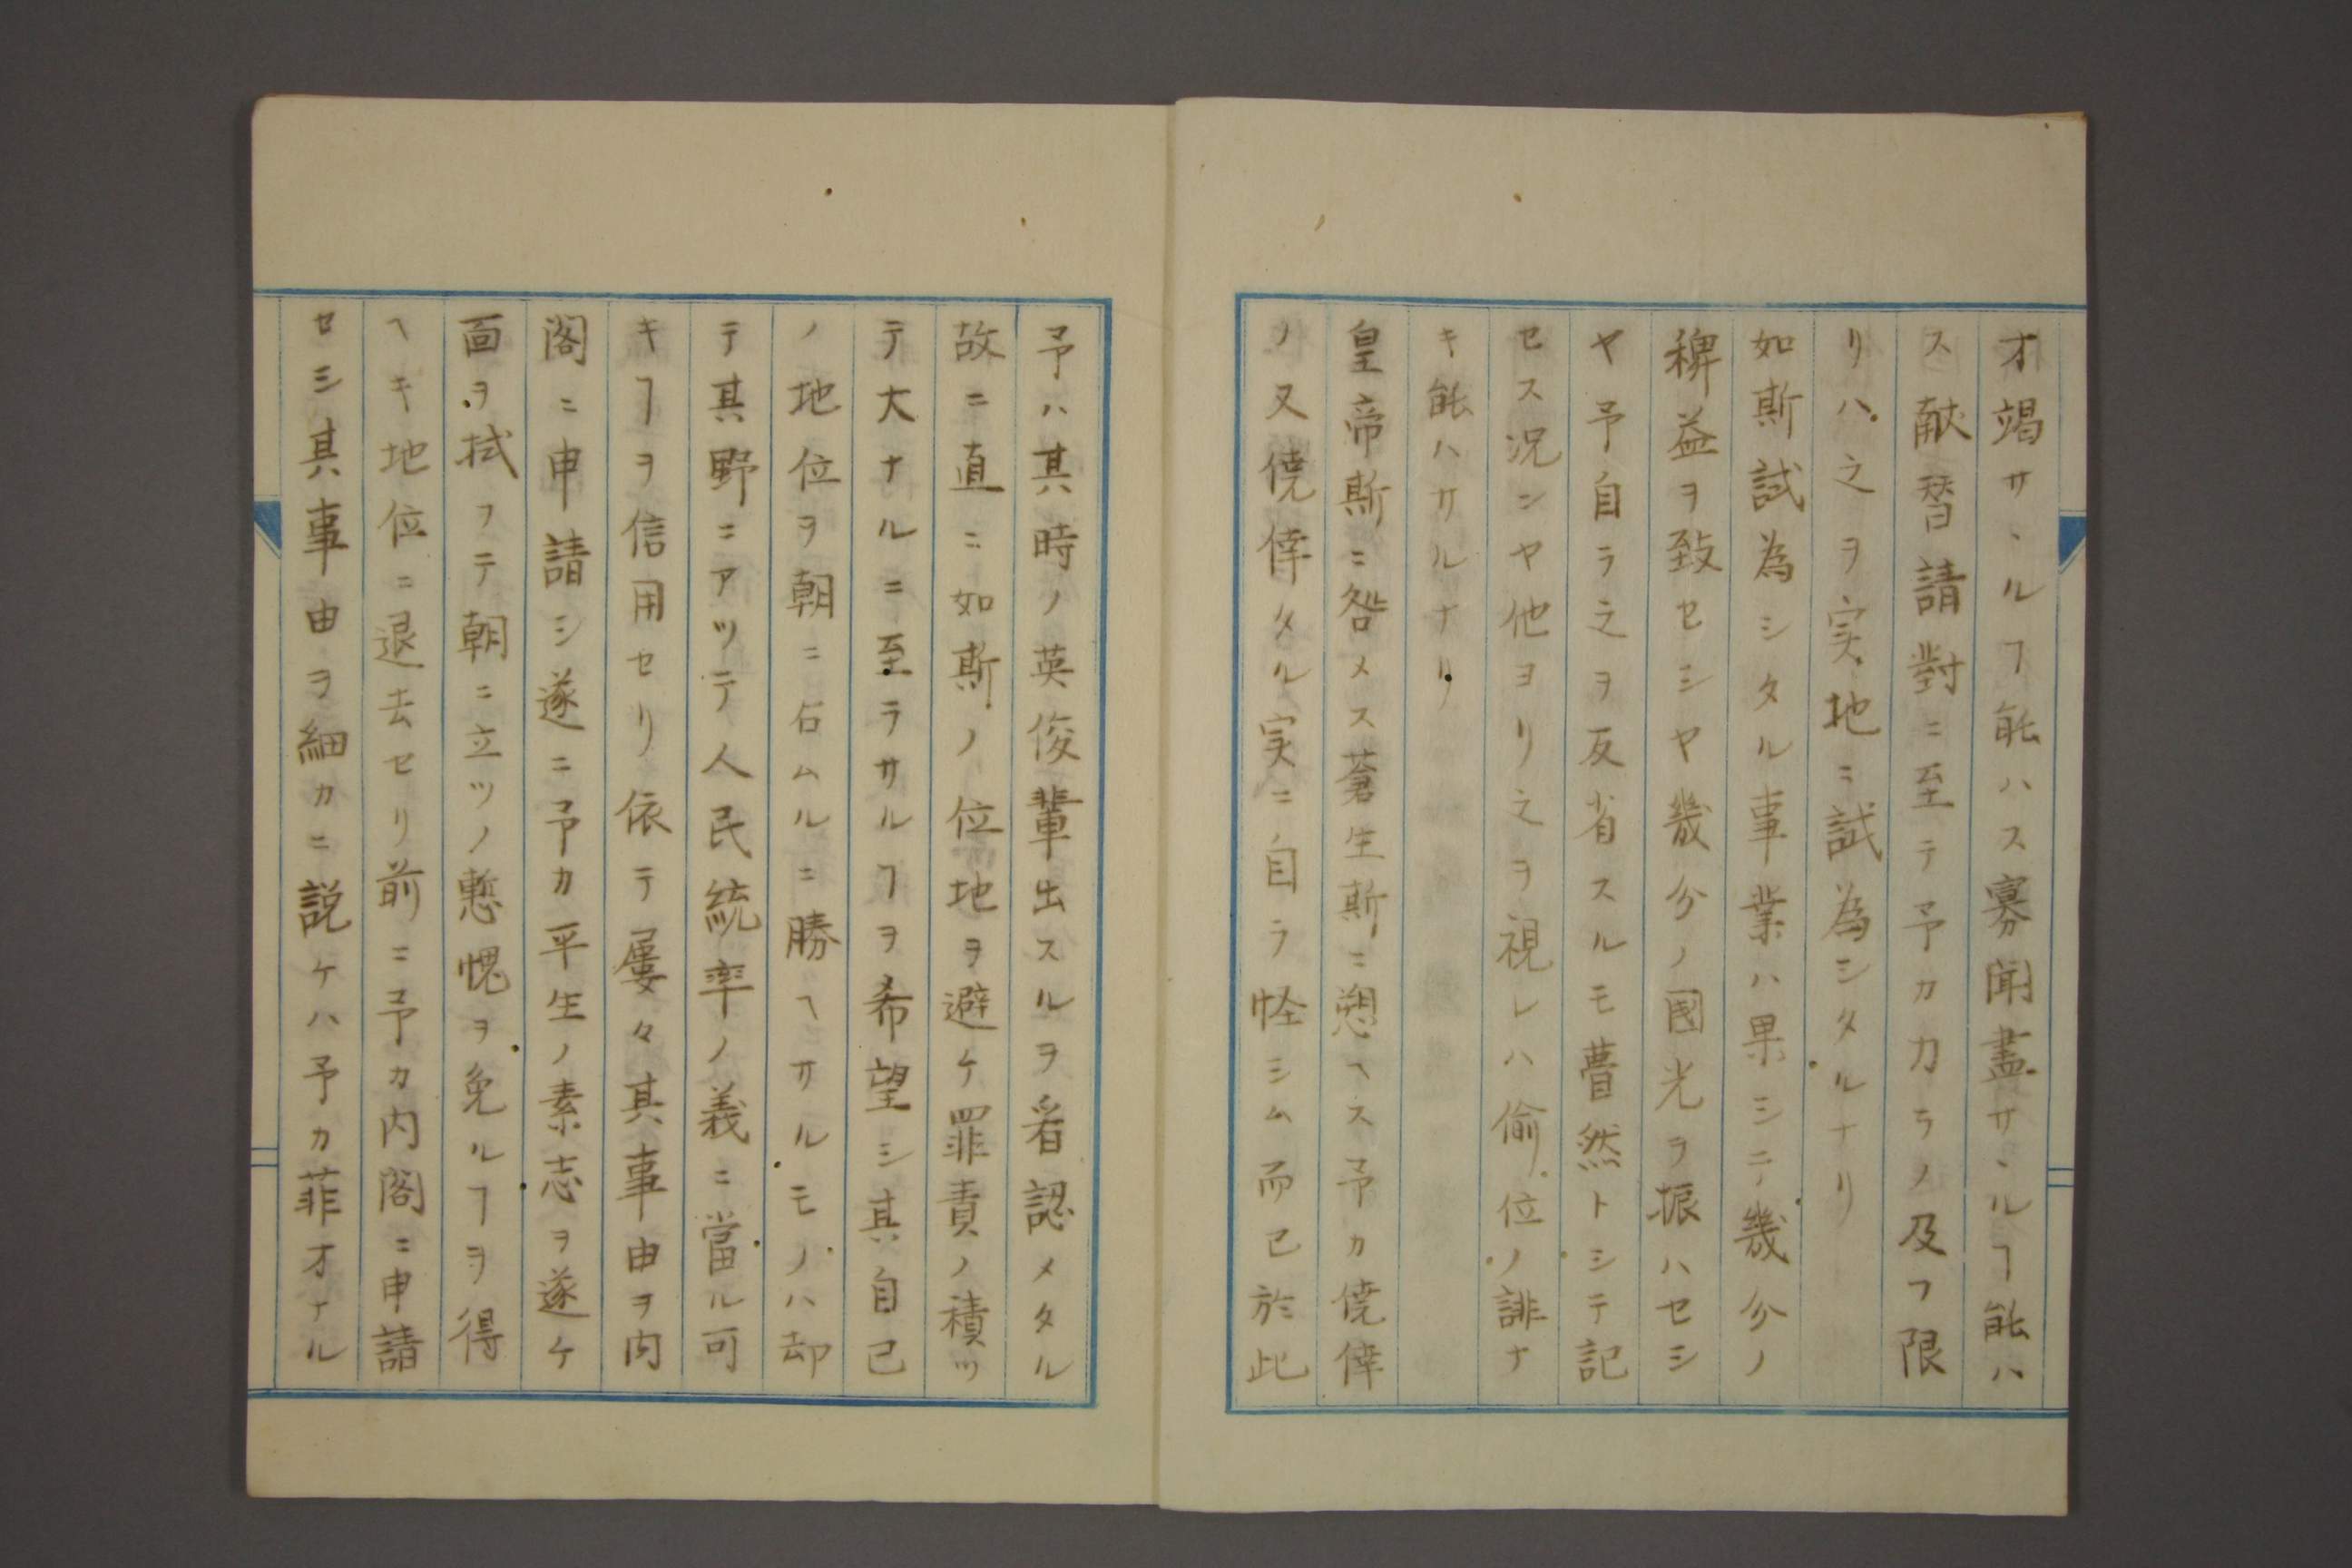 才竭サヽルヿ能ハス寡聞盡サヽルヿ能ハ
ス献替請對ニ至テ予カ力ラノ及フ限
リハ之ヲ実地ニ試為シタルナリ
如斯試為シタル事業ハ果シテ幾分ノ
稗益ヲ致セシヤ幾分ノ國光ヲ振ハセシ
ヤ予自ラ之ヲ反省スルモ瞢然トシテ記
セス况ンヤ他ヨリ之ヲ視レハ偷位ノ誹ナ
キ能ハサルナリ
皇帝斯ニ咎メス蒼生斯ニ愬ヘス予カ僥倖
ノ又僥倖タル実ニ自ラ怪シム而已於此
予ハ其時ノ英俊輩出スルヲ看認メタル
故ニ直ニ如斯ノ位地ヲ避ケ罪責ノ積ッ
テ大ナルニ至ラサルヿヲ希望シ其自己
ノ地位ヲ朝ニ占ムルニ勝ヘサルモノハ却
テ其野ニアッテ人民統率ノ義ニ當ル可
キヿヲ信用セリ依テ屢々其事由ヲ内
閣ニ申請シ遂ニ予カ平生ノ素志ヲ遂ケ
面ヲ拭フテ朝ニ立ツノ慙愧ヲ免ルヿヲ得
ヘキ地位ニ退去セリ前ニ予カ内閣ニ申請
セシ其事由ヲ細カニ説ケハ予カ菲才ナル